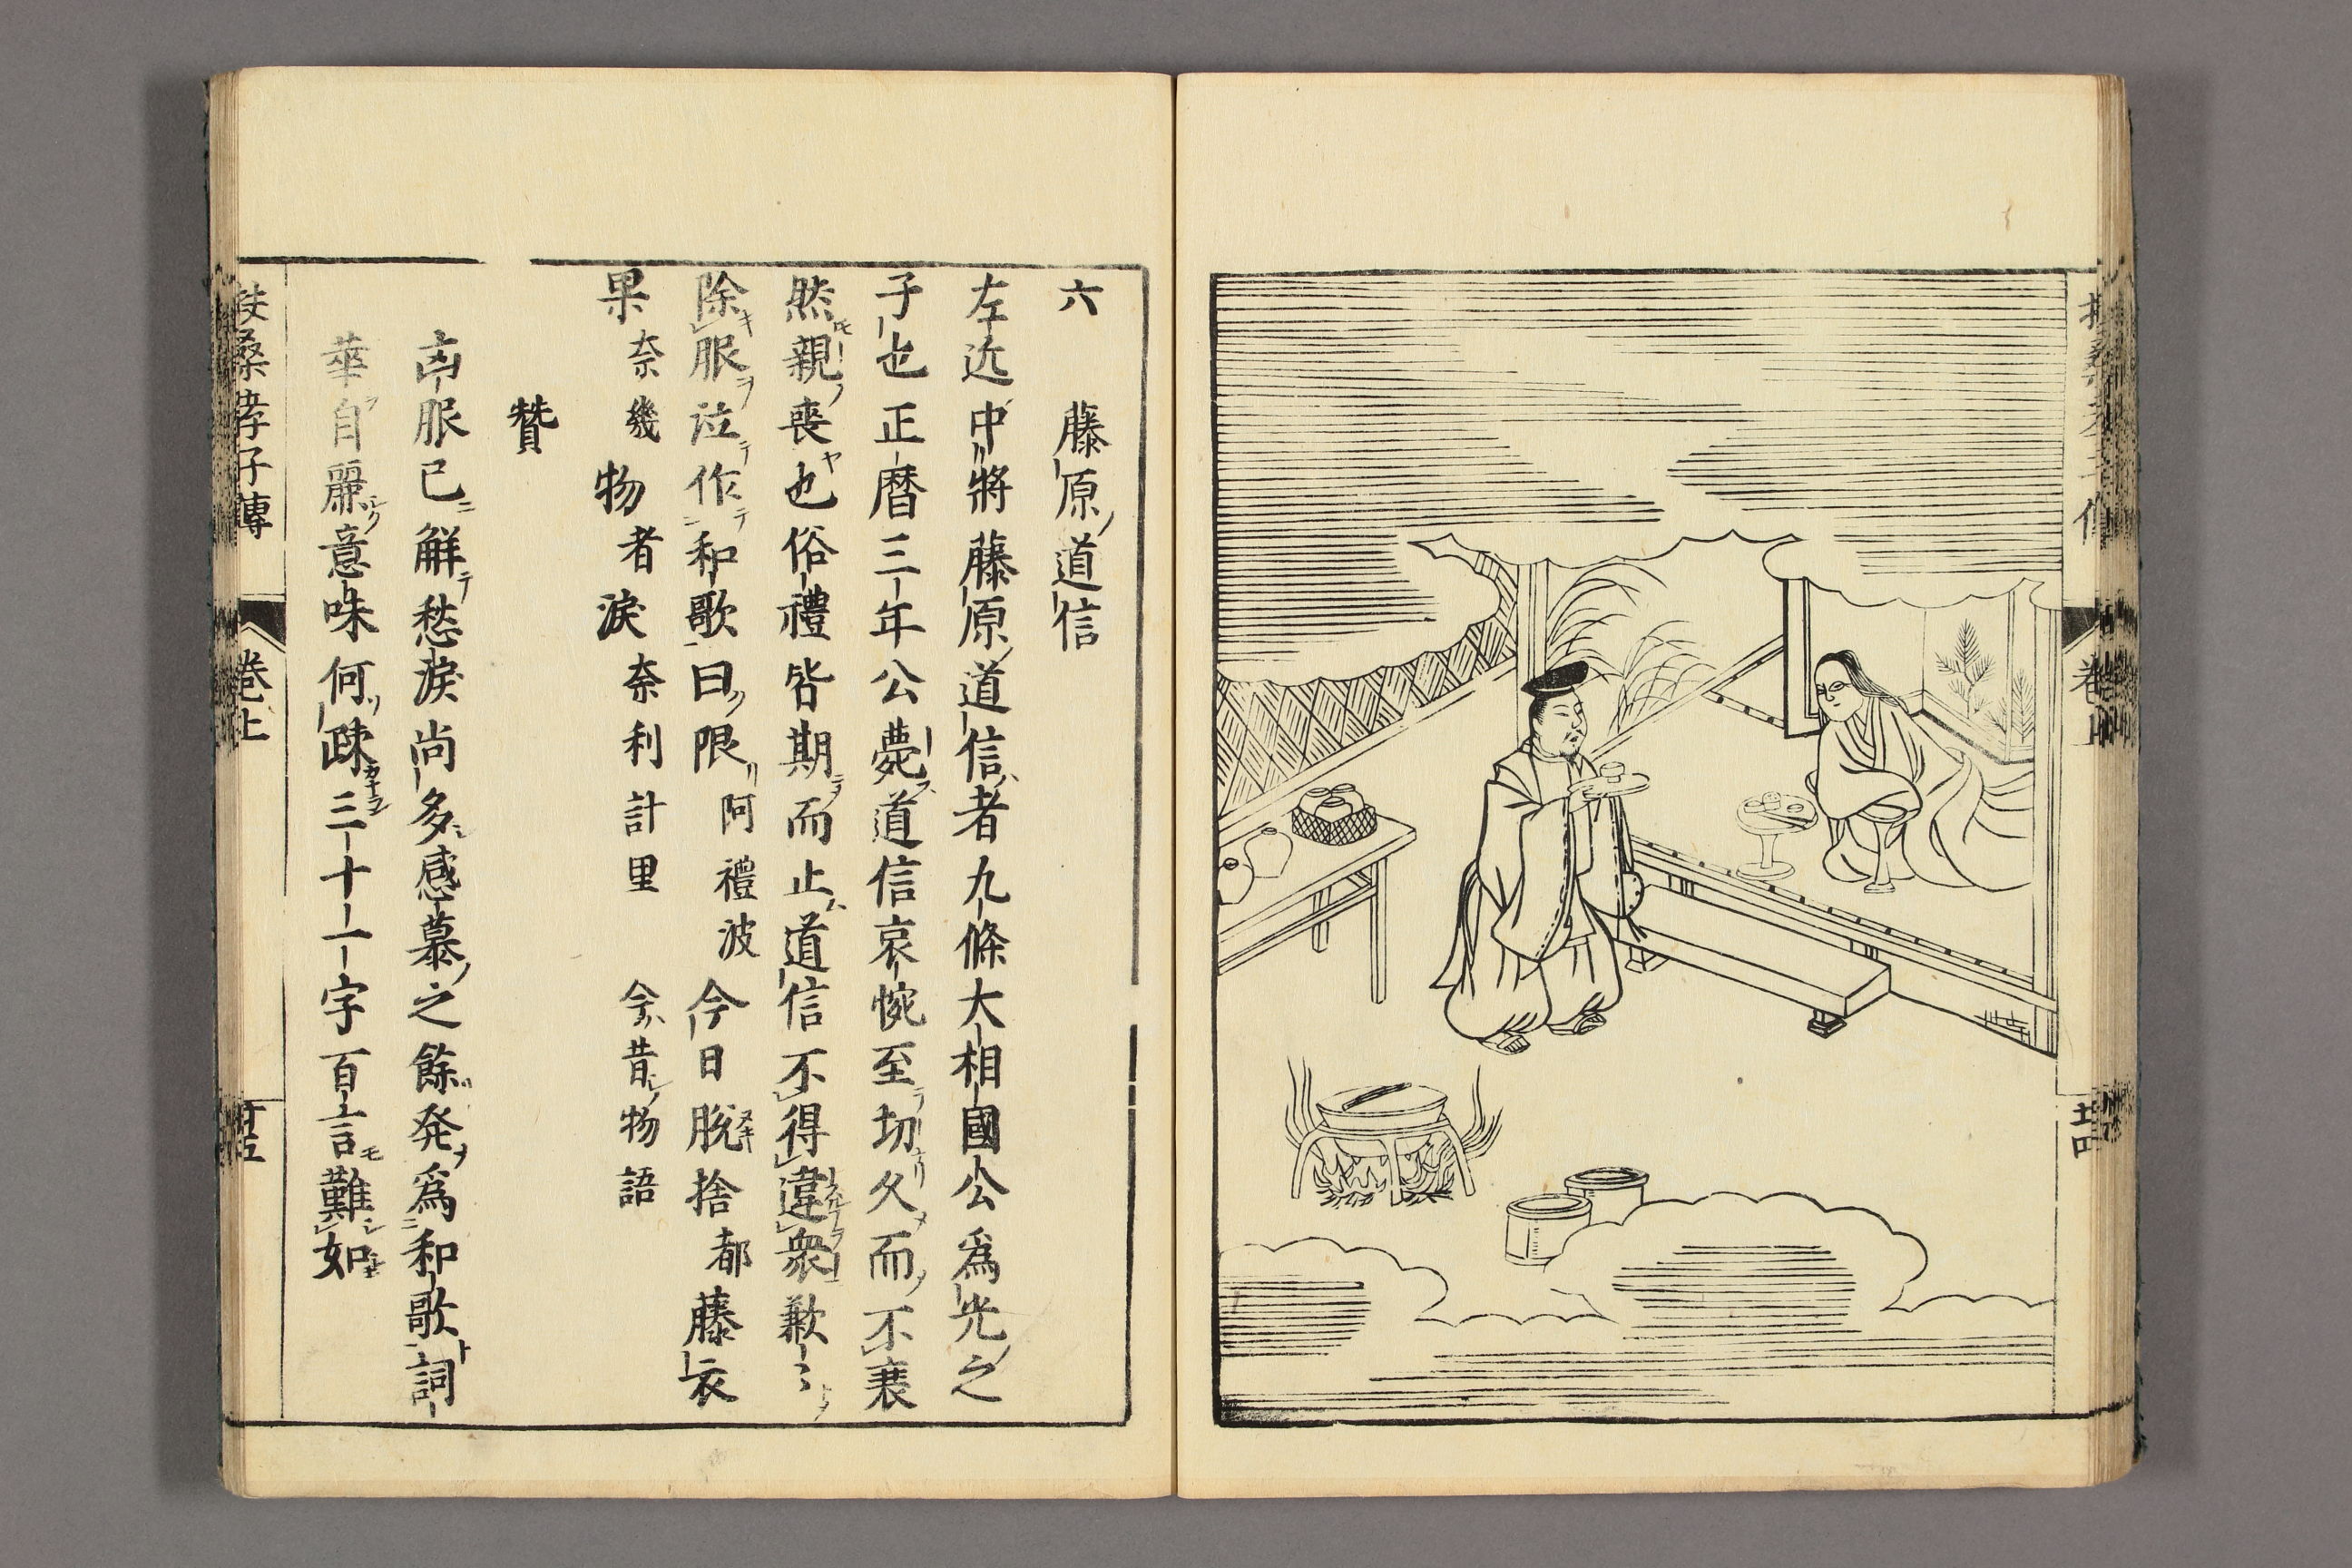 六 藤原道信
左近中將藤原道信者九條大相國公爲光之
子也正暦三年公薨道信哀惋至切久而不衰
然親喪也俗禮皆期而止道信不得違衆歎〻
除服泣作和歌曰限阿禮波今日脫捨都藤衣
果奈幾物者淚奈利計里 今昔物語
賛
凶服已解愁淚尚多感慕之餘発爲和歌詞
華自麗意味何疎三十一字百言難如
扶桑孝子傳 卷上 廿五